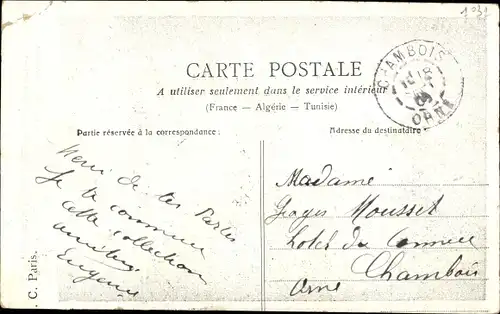 CARTE POSTALE
A utiliser seulement dans le service intérieur
(France — Algérie — Tunisie)
Partie réservée à la correspondance:
Adresse du destinataire
CHAMBOIS
ORNE
Merci de tes Cartes
Je te
cette collection
Eugène
Madame
Georges Mousset
hotel du
Chambois
Orne
. C. Paris.